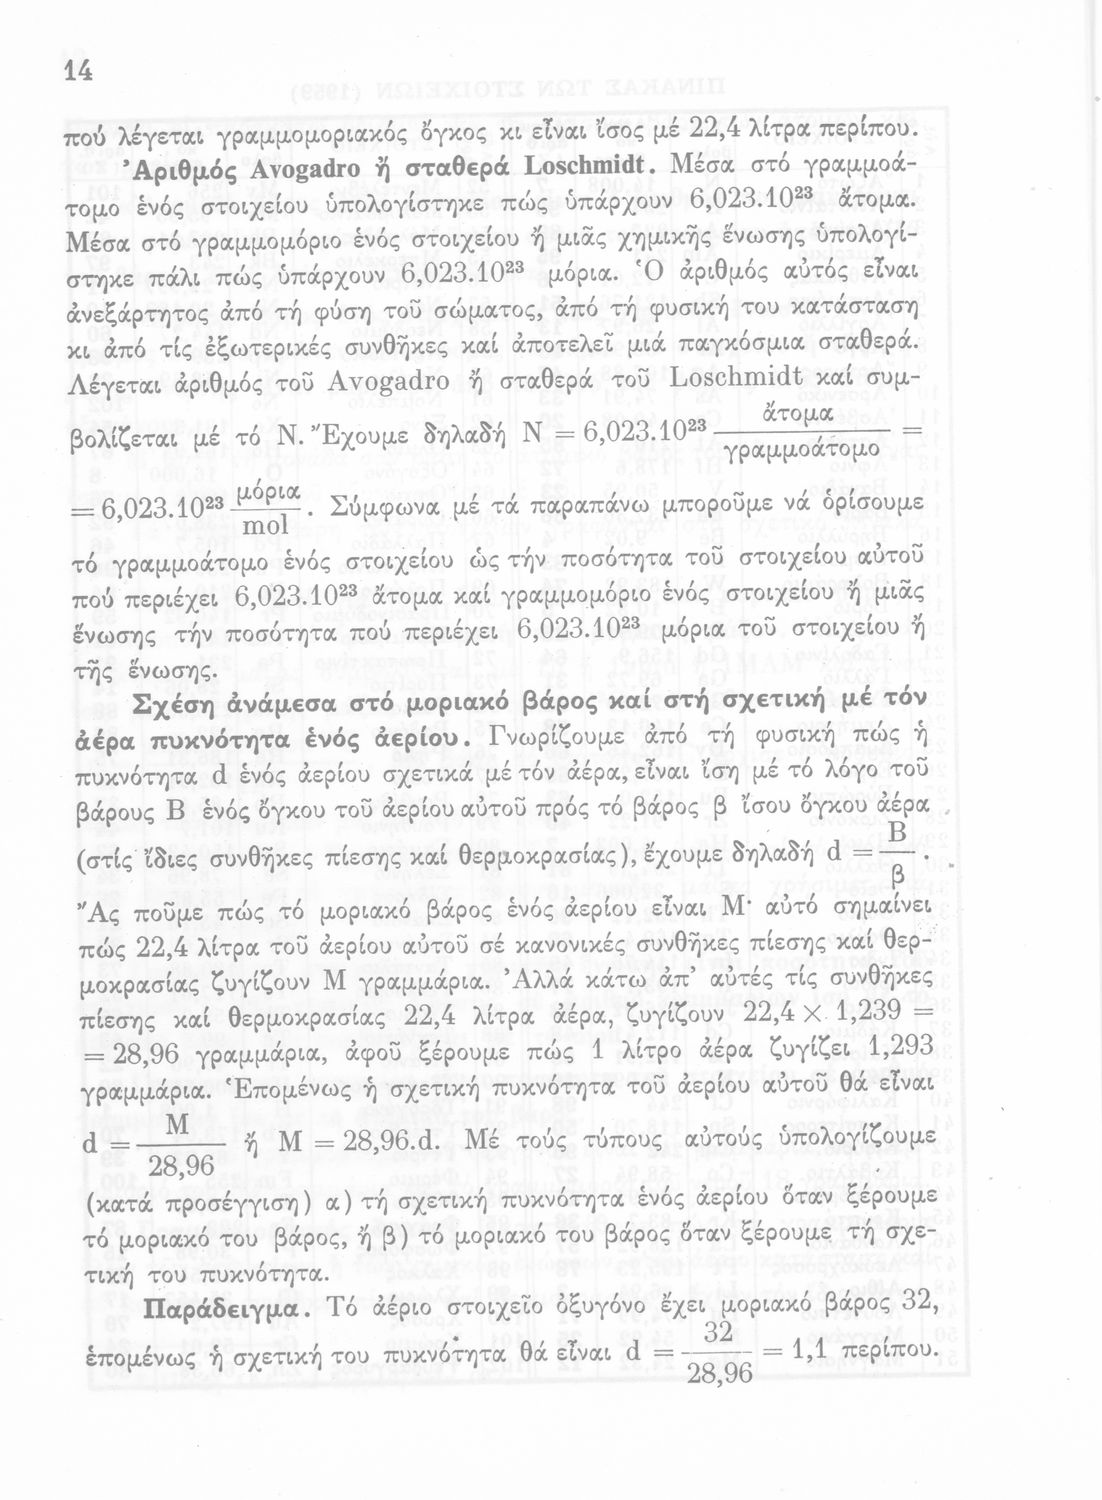 14
πού λέγεται γραμμομοριακός ὄγκος κι εἶναι ἴσος μέ 22,4 λίτρα περίπου.
Ἀριθμός Avogadro ἤ σταθερά Loschmidt. Μέσα στό γραμμοά-
τομο ἑνός στοιχείου ὑπολογίστηκε πώς ὑπάρχουν 6,023.10²³ ἄτομα.
Μέσα στό γραμμομόριο ἑνός στοιχείου ἤ μιᾶς χημικῆς ἕνωσης ὑπολογί-
στηκε πάλι πώς ὑπάρχουν 6,023.10²³ μόρια. Ὁ ἀριθμός αὐτός εἶναι
ἀνεξάρτητος ἀπό τή φύση τοῦ σώματος, ἀπό τή φυσική του κατάσταση
κι ἀπό τίς ἐξωτερικές συνθῆκες καί ἀποτελεῖ μιά παγκόσμια σταθερά.
Λέγεται ἀριθμός τοῦ Avogadro ἤ σταθερά τοῦ Loschmidt καί συμ-
βολίζεται μέ τό N. Ἔχουμε δηλαδή N = 6,023.10²³ ἄτομα / γραμμοάτομο =
= 6,023.10²³ μόρια / mol . Σύμφωνα μέ τά παραπάνω μποροῦμε νά ὁρίσουμε
τό γραμμοάτομο ἑνός στοιχείου ὡς τήν ποσότητα τοῦ στοιχείου αὐτοῦ
πού περιέχει 6,023.10²³ ἄτομα καί γραμμομόριο ἑνός στοιχείου ἤ μιᾶς
ἕνωσης τήν ποσότητα πού περιέχει 6,023.10²³ μόρια τοῦ στοιχείου ἤ
τῆς ἕνωσης.
Σχέση ἀνάμεσα στό μοριακό βάρος καί στή σχετική μέ τόν
ἀέρα πυκνότητα ἑνός ἀερίου. Γνωρίζουμε ἀπό τή φυσική πώς ἡ
πυκνότητα d ἑνός ἀερίου σχετικά μέ τόν ἀέρα, εἶναι ἴση μέ τό λόγο τοῦ
βάρους B ἑνός ὄγκου τοῦ ἀερίου αὐτοῦ πρός τό βάρος β ἴσου ὄγκου ἀέρα
(στίς ἴδιες συνθῆκες πίεσης καί θερμοκρασίας), ἔχουμε δηλαδή d = B / β .
Ἄς ποῦμε πώς τό μοριακό βάρος ἑνός ἀερίου εἶναι M· αὐτό σημαίνει
πώς 22,4 λίτρα τοῦ ἀερίου αὐτοῦ σέ κανονικές συνθῆκες πίεσης καί θερ-
μοκρασίας ζυγίζουν M γραμμάρια. Ἀλλά κάτω ἀπ’ αὐτές τίς συνθῆκες
πίεσης καί θερμοκρασίας 22,4 λίτρα ἀέρα, ζυγίζουν 22,4 X 1,239 =
= 28,96 γραμμάρια, ἀφοῦ ξέρουμε πώς 1 λίτρο ἀέρα ζυγίζει 1,293
γραμμάρια. Ἑπομένως ἡ σχετική πυκνότητα τοῦ ἀερίου αὐτοῦ θά εἶναι
d = M / 28,96 ἤ M = 28,96.d. Μέ τούς τύπους αὐτούς ὑπολογίζουμε
(κατά προσέγγιση) α) τή σχετική πυκνότητα ἑνός ἀερίου ὅταν ξέρουμε
τό μοριακό του βάρος, ἤ β) τό μοριακό του βάρος ὅταν ξέρουμε τή σχε-
τική του πυκνότητα.
Παράδειγμα. Τό ἀέριο στοιχεῖο ὀξυγόνο ἔχει μοριακό βάρος 32,
ἑπομένως ἡ σχετική του πυκνότητα θά εἶναι d = 32 / 28,96 = 1,1 περίπου.